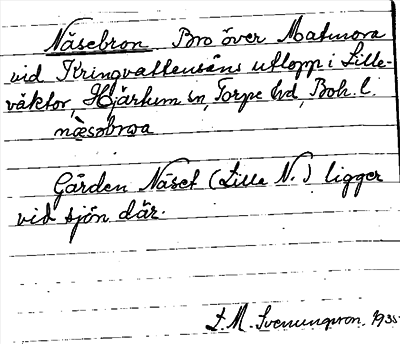 Näsebron Bro över Matmora
vid Kringvattensåns utlopp i Lille-
väktor, Hjärtum sn, Torpe hd, Boh. l.
næsəbroa
Gården Näset (Lille N.) ligger
vid sjön där.
S. M. Svenungsson. 1935